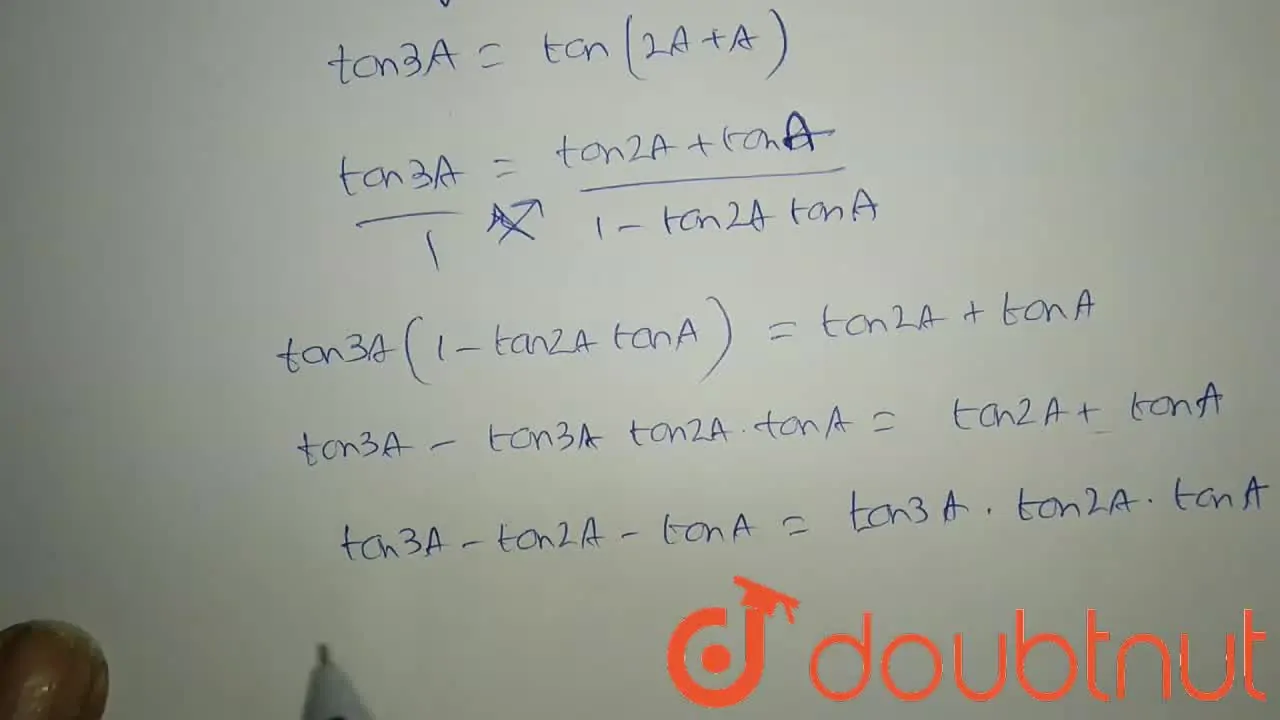 tan3A = tan(2A+A)
tan3A/1 = tan2A + tanA/1 - tan2A tanA
tan3A(1 - tan2A tanA) = tan2A + tanA
tan3A - tan3A tan2A . tanA = tan2A + tanA
tan3A - tan2A - tanA = tan3A . tan2A . tanA
doubtnut